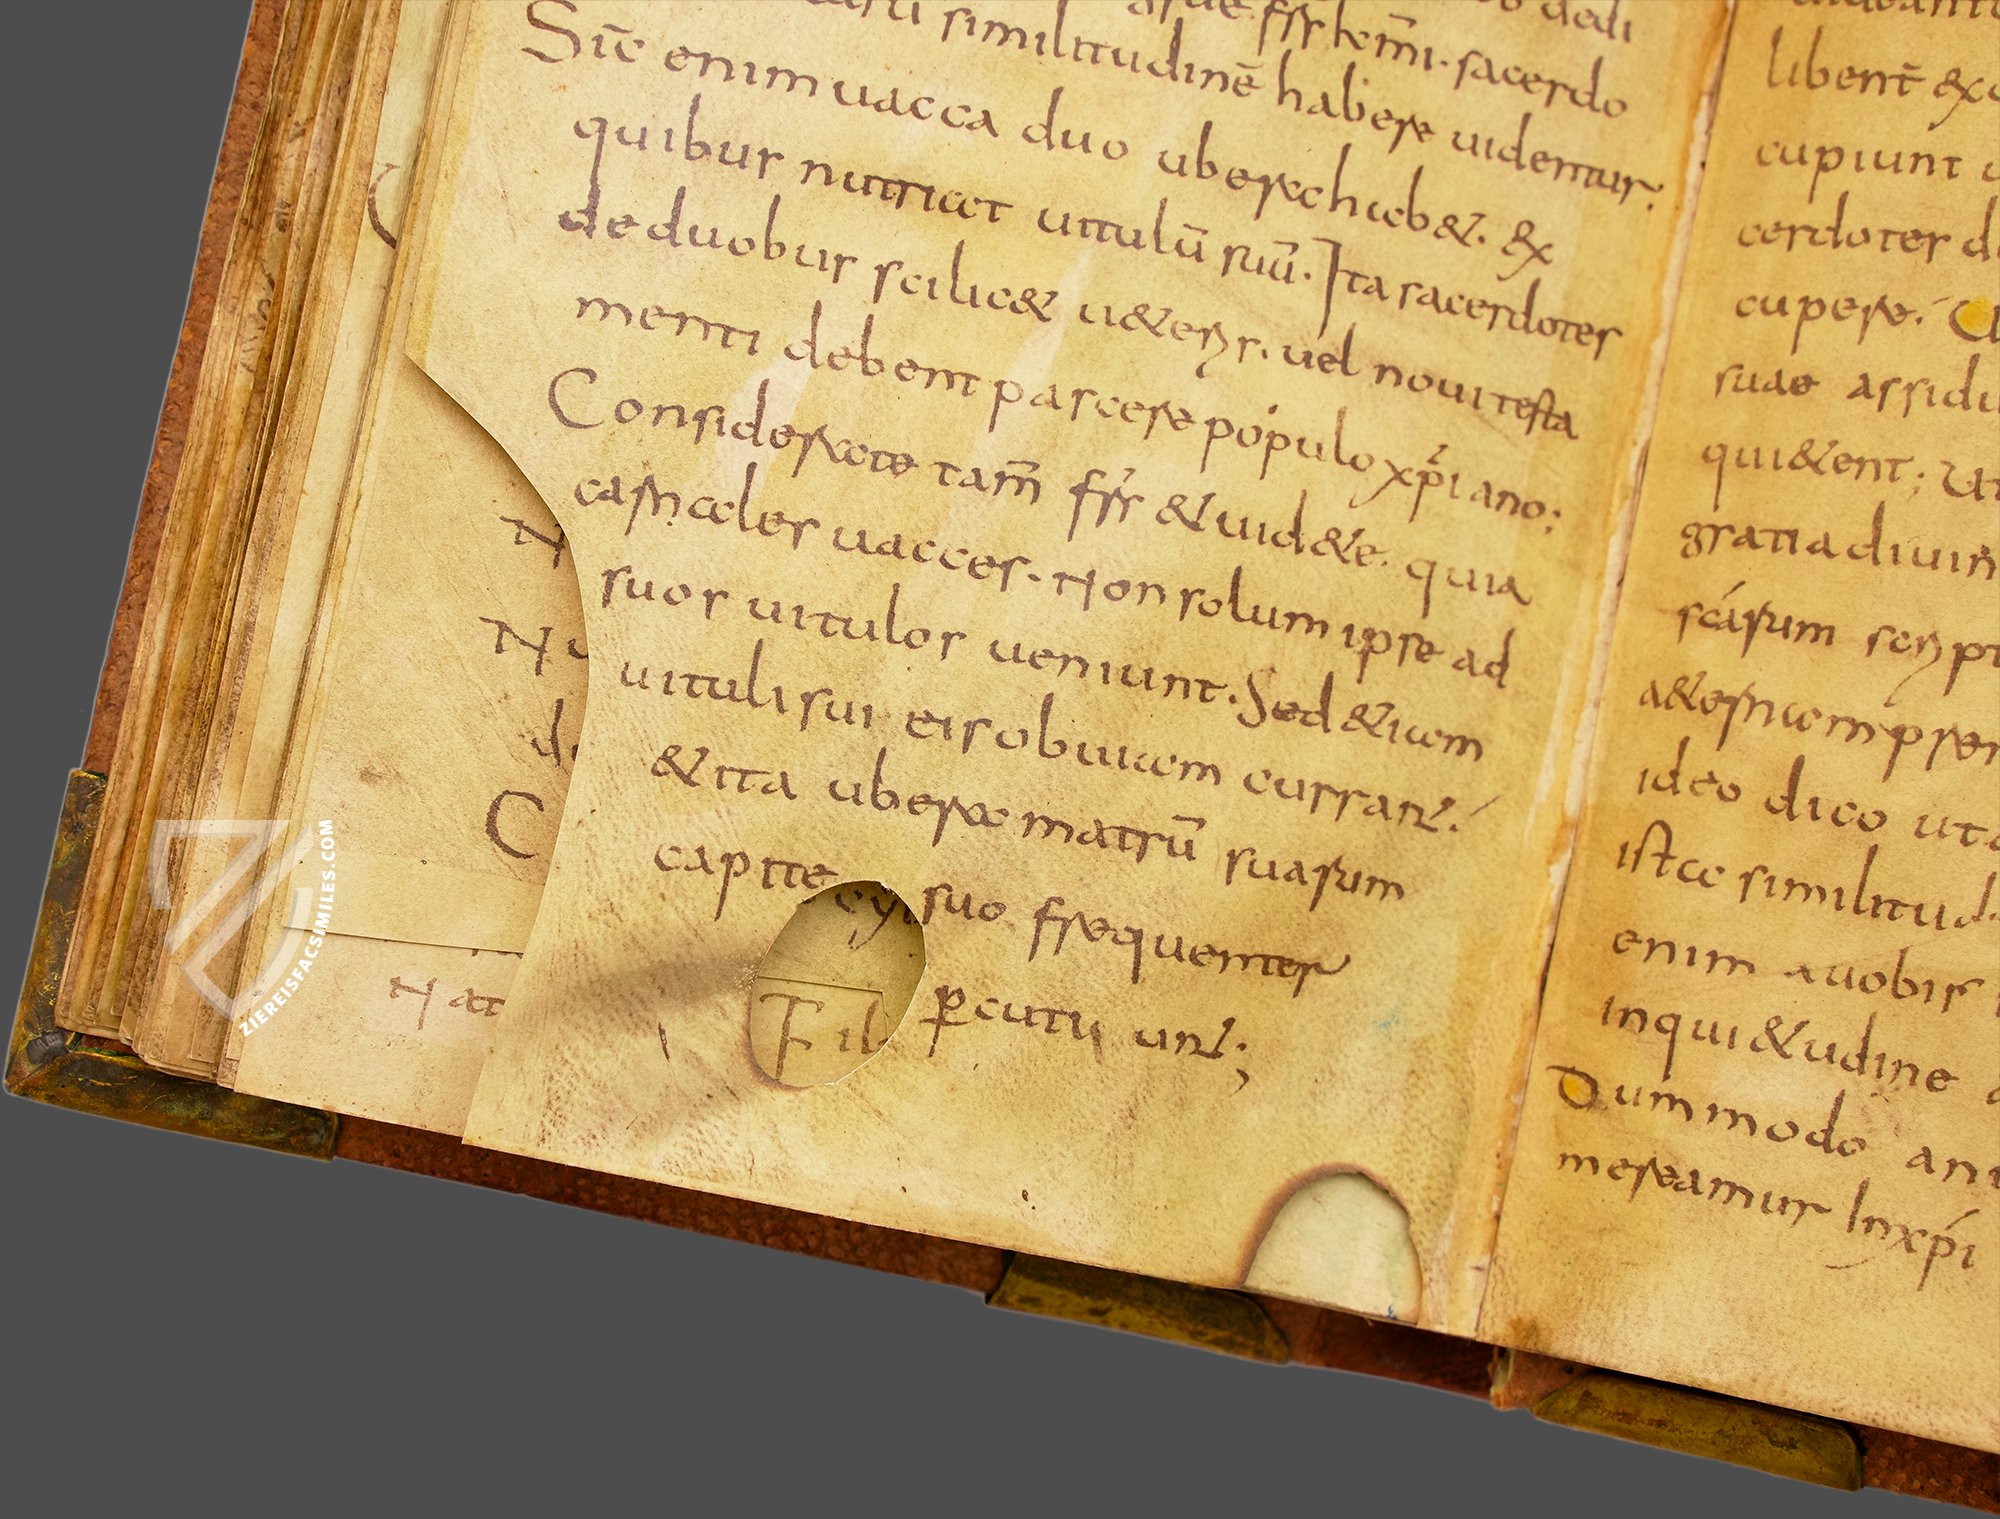 similitudinē habere uidentur:
Sic̄ enim uacca duo ubera habet. Ex
quibus nutriat uitulū suū. Ita sacerdotes
de duobus scilicet ueteris. uel noui testa
menti debent pascere populo xp̄iano:
Considerate tam̄ fr̄s & uidete. quia
carnales uaccas. Non solum ipse ad
suos uitulos ueniunt. Sed etiam
uituli sui eis obuiam currant.
& ita ubera matrū suarum
capite suo. frequenter
ꝑcutiunt;
N
N
d
C
Nat
Fil
libent̄ &
cupiunt u
cerdotes d
cupere.
suae assidu
quietent; Ut
gratia diuin
scārum scrip
aeternam pre
ideo dico ut
ista similitud
enim duobis
inquietudine
Dummodo ani
mereamur In xp̄i
ZIEREISFACSIMILES.COM